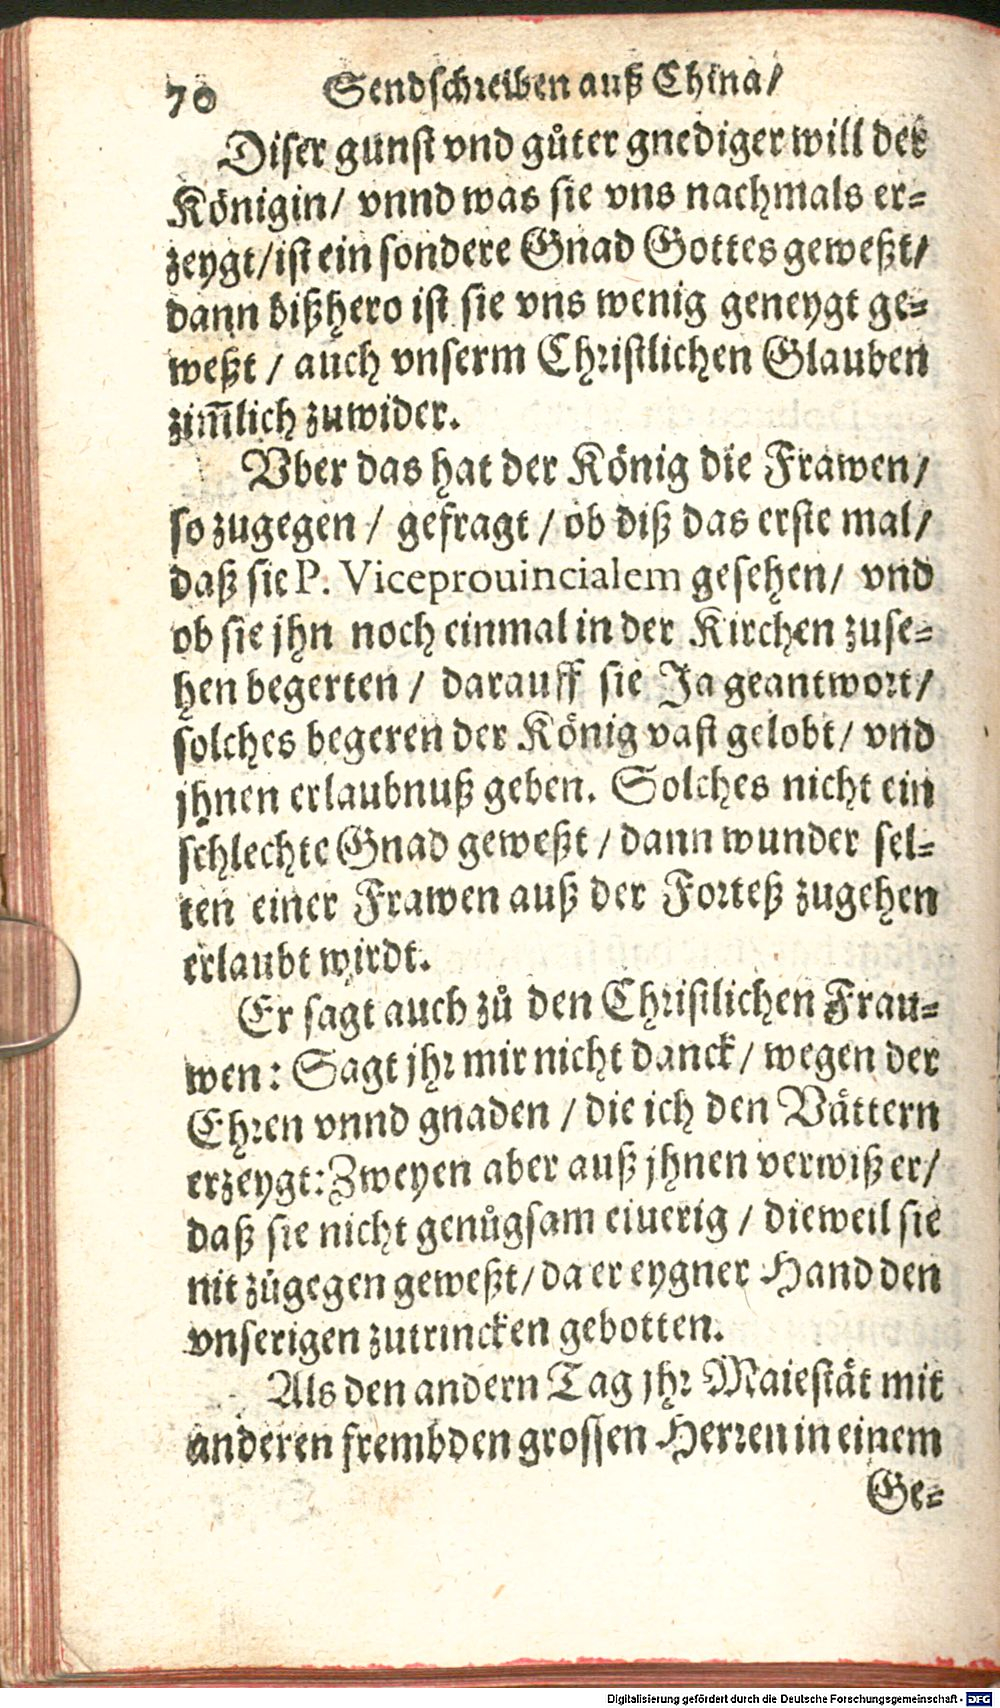 70 Sendschreiben auß China/
Diser gunst vnd gůter gnediger will der
Königin/ vnnd was sie vns nachmals er-
zeygt/ist ein sondere Gnad Gottes geweßt/
dann bißhero ist sie vns wenig geneygt ge-
weßt / auch vnserm Christlichen Glauben
zim̃lich zuwider.
Vber das hat der König die Frawen/
so zugegen / gefragt / ob diß das erste mal/
daß sie P. Viceprouincialem gesehen/ vnd
ob sie jhn noch einmal in der Kirchen zuse-
hen begerten / darauff sie Ja geantwort/
solches begeren der König vast gelobt/ vnd
jhnen erlaubnuß geben. Solches nicht ein
schlechte Gnad geweßt / dann wunder sel-
ten einer Frawen auß der Forteß zugehen
erlaubt wirdt.
Er sagt auch zů den Christlichen Frau-
wen: Sagt jhr mir nicht danck/ wegen der
Ehren vnnd gnaden / die ich den Vättern
erzeygt: Zweyen aber auß jhnen verwiß er/
daß sie nicht genůgsam eiuerig / dieweil sie
nit zůgegen geweßt/ da er eygner Hand den
vnserigen zutrincken gebotten.
Als den andern Tag jhr Maiestät mit
anderen frembden grossen Herren in einem
Ge-
Digitalisierung gefördert durch die Deutsche Forschungsgemeinschaft - DFG